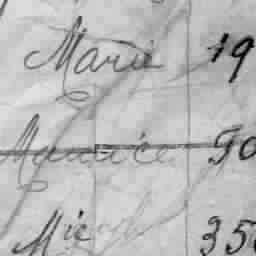 Marie 19
Maurice 50
35